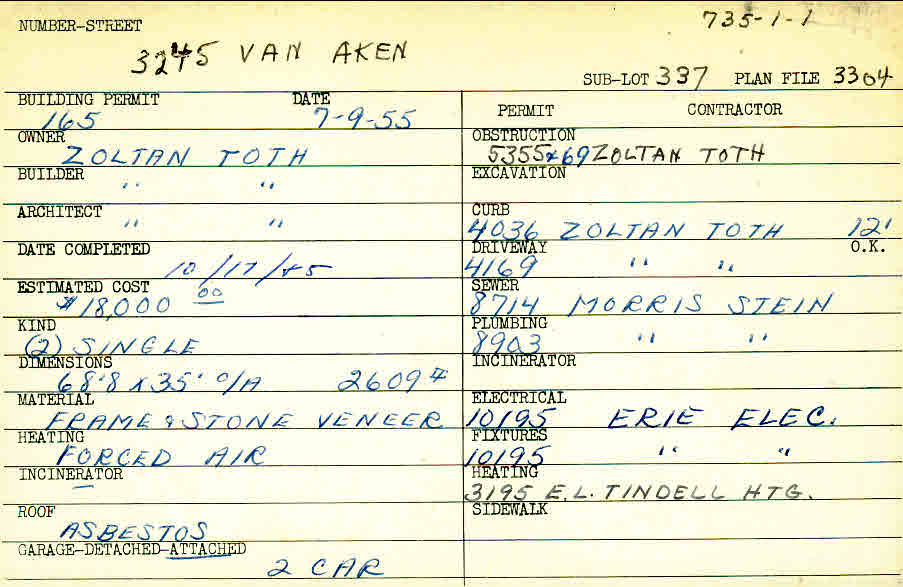 NUMBER-STREET
735-1-1
3245 VAN AKEN
SUB-LOT 337 PLAN FILE 3304
BUILDING PERMIT DATE
165 7-9-55
OWNER
ZOLTAN TOTH
BUILDER
" "
ARCHITECT
" "
DATE COMPLETED
10/17/45
ESTIMATED COST
$18,000 00
KIND
(2) SINGLE
DIMENSIONS
68'8 x 35' O/A 2609 #
MATERIAL
FRAME & STONE VENEER
HEATING
FORCED AIR
INCINERATOR
ROOF
ASBESTOS
GARAGE-DETACHED-ATTACHED
2 CAR
PERMIT CONTRACTOR
OBSTRUCTION
5355 & 69 ZOLTAN TOTH
EXCAVATION
CURB
4036 ZOLTAN TOTH 12'
DRIVEWAY O.K.
4169 " "
SEWER
8714 MORRIS STEIN
PLUMBING
8903 " "
INCINERATOR
ELECTRICAL
10195 ERIE ELEC.
FIXTURES
10195 " "
HEATING
3195 E.L. TINDELL HTG.
SIDEWALK